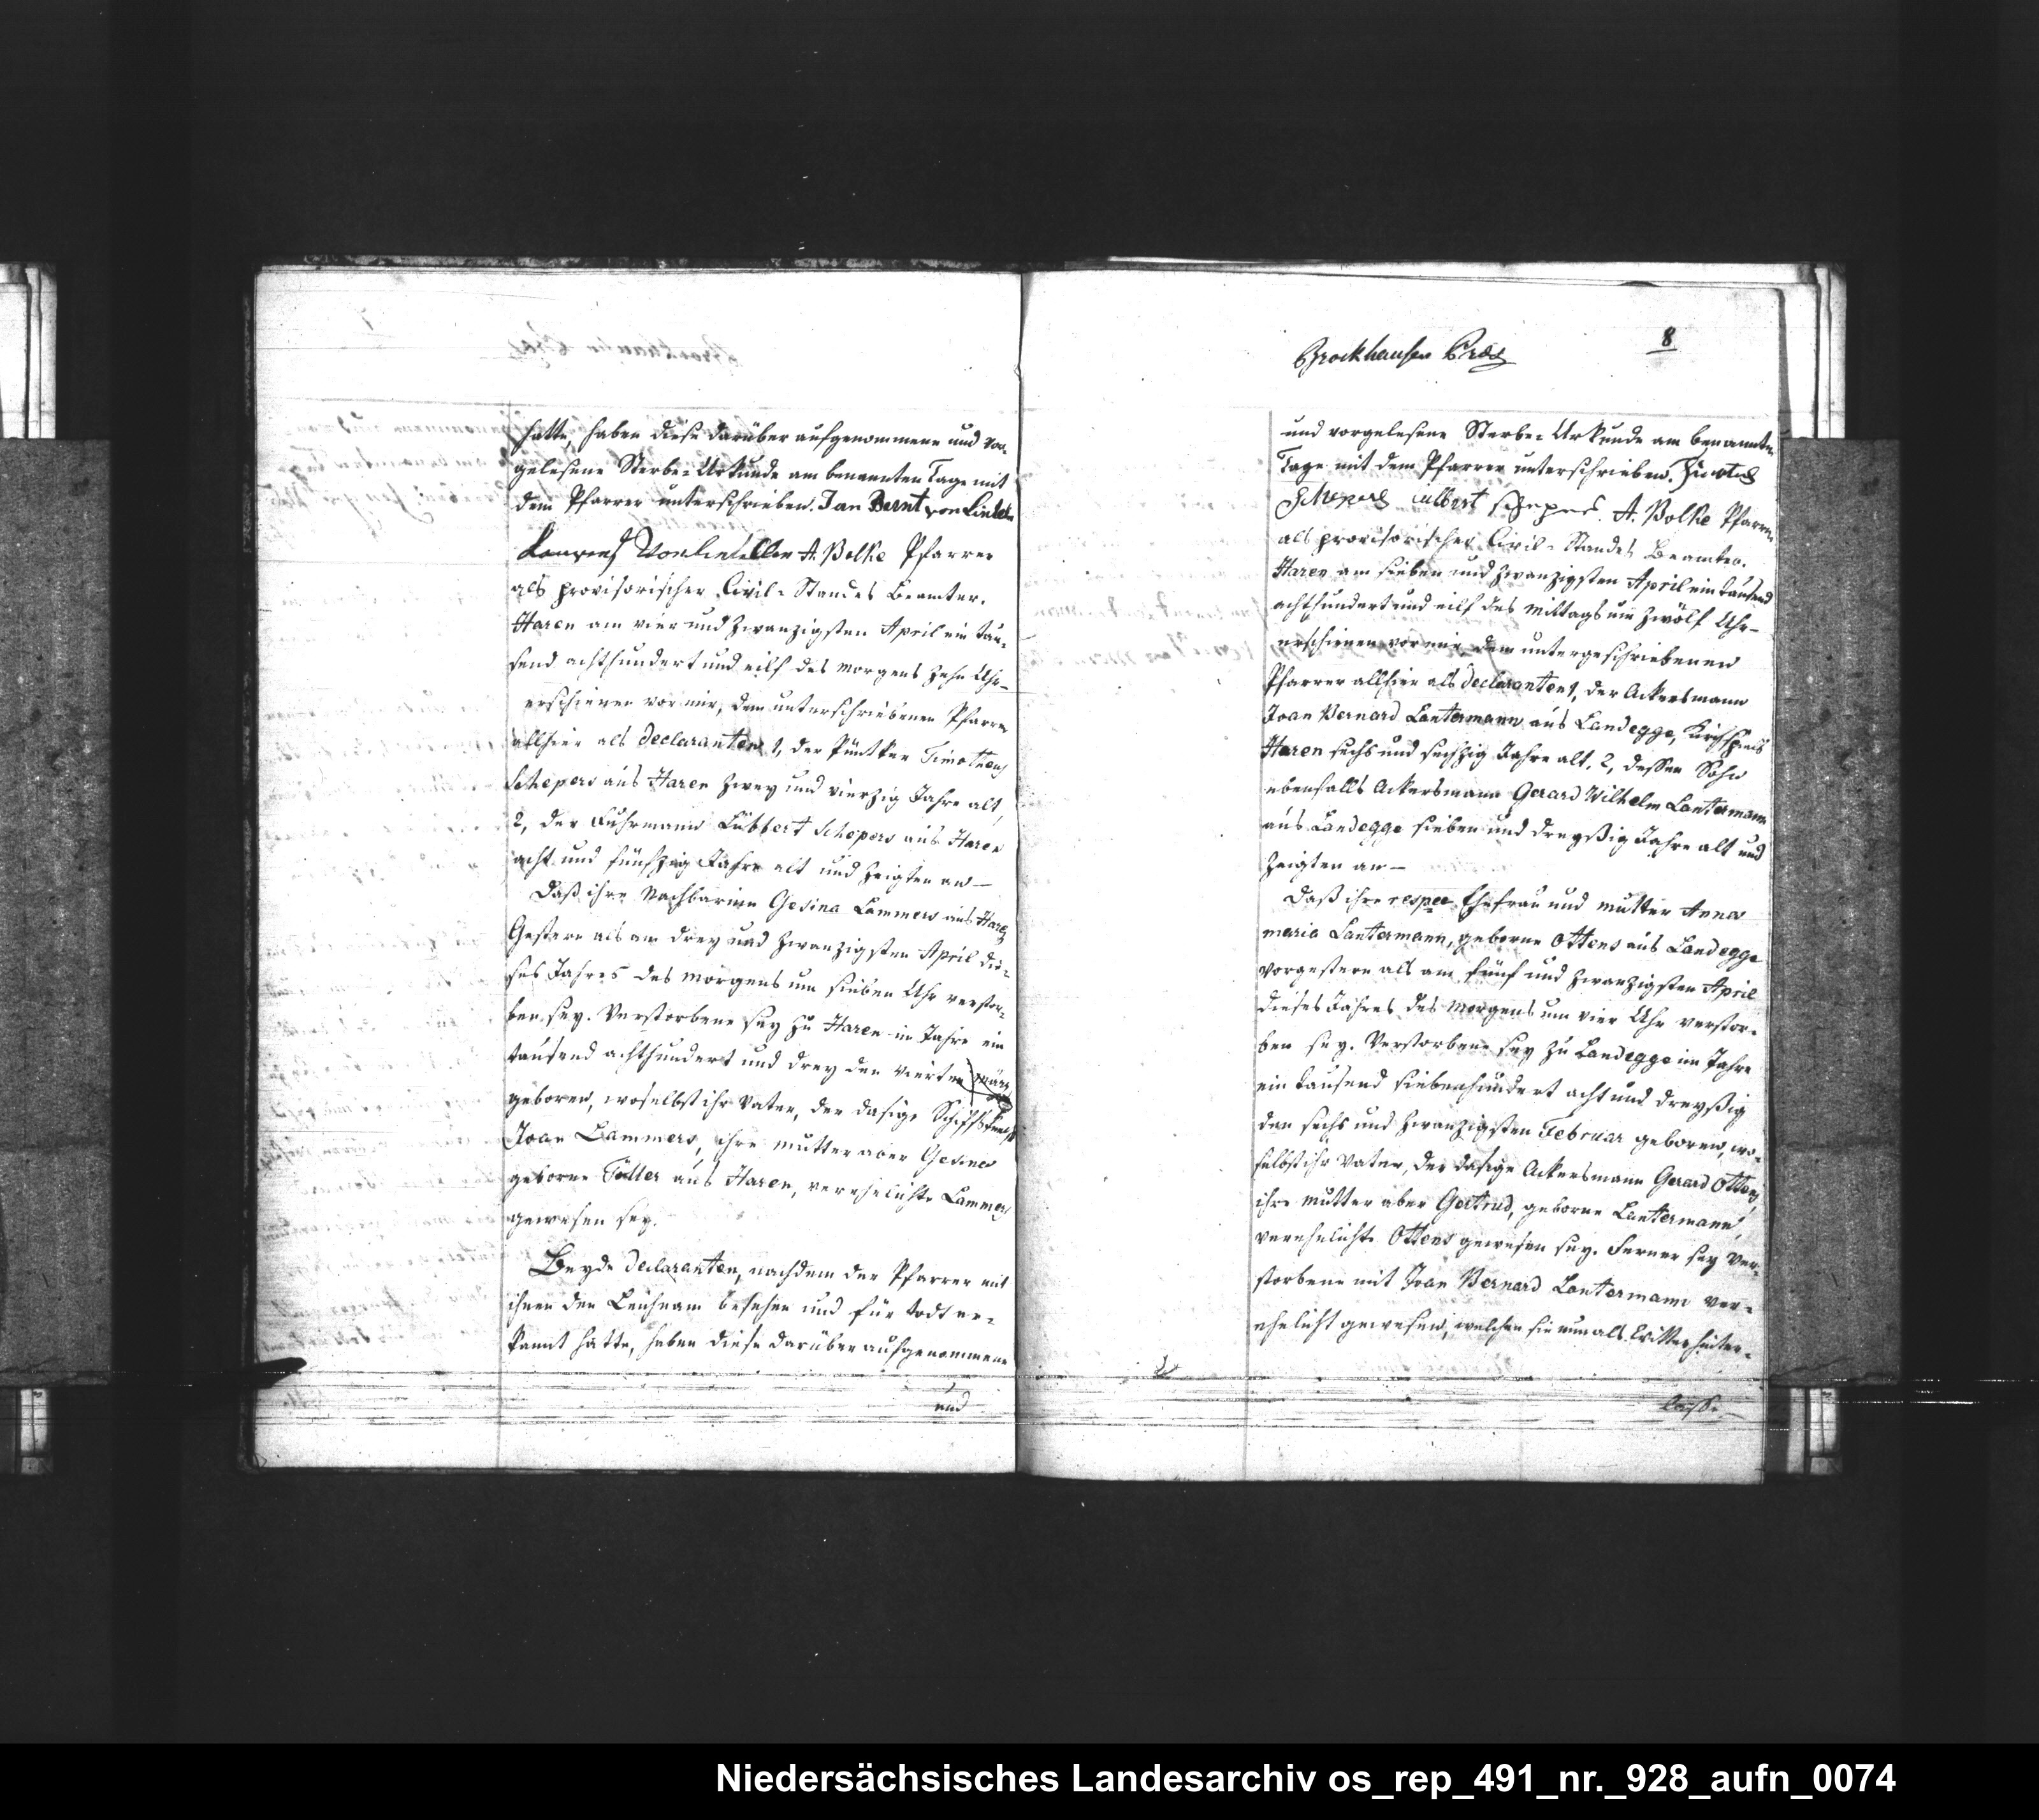 hatte, haben diese darüber aufgenommene und vor-
gelesene Sterbe-Urkunde am benannten Tage mit
dem Pfarrer unterschrieben. Jan Bernt von Lintel
A. Bolke Pfarrer
als provisorischer Civil-Standes Beamter.
Haren am vier und zwanzigsten April ein tau-
send achthundert und eilf des Morgens zehn Uhr-
erschienen vor mir, dem unterschriebenen Pfarrer
allhier als Declaranten 1, der Püntker Timotheus
Schepers aus Haren zwey und vierzig Jahre alt,
2, der Fuhrmann Lübbert Schepers aus Haren
acht und fünfzig Jahre alt und zeigten an —
Daß ihre Nachbarinn Gesina Lammers aus Haren
Gestern als am drey und zwanzigsten April die-
ses Jahres des Morgens um sieben Uhr verstor-
ben sey. Verstorbene sey zu Haren im Jahre ein
tausend achthundert und drey den vierten März
geboren, woselbst ihr Vater, der dasige Schiffsknecht
Joan Lammers, ihre Mutter aber Gesina
geborne Töller aus Haren, verehelichte Lammers
gewesen sey.
Beyde Declaranten, nachdem der Pfarrer mit
ihnen den Leichnam besehen und für todt er-
kannt hatte, haben diese darüber aufgenommene
und
Brockhausen Präs
8
und vorgelesene Sterbe-Urkunde am benannten
Tage mit dem Pfarrer unterschrieben.
Schepers albert schepers. A. Bolke Pfarrer
als provisorischer Civil-Standes Beamter.
Haren am sieben und zwanzigsten April ein tausend
achthundert und eilf des Mittags um zwölf Uhr-
erschienen vor mir dem untergeschriebenen
Pfarrer allhier als Declaranten 1, der Ackersmann
Joan Bernard Lantermann aus Landegge, Kirchspiels
Haren sechs und sechzig Jahre alt, 2, dessen Sohn
ebenfalls Ackersmann Gerard Wilhelm Lantermann
aus Landegge sieben und dreyßig Jahre alt und
zeigten an —
Daß ihre respee Ehefrau und Mutter Anna
Maria Lantermann, geborne Ottens aus Landegge
vorgestern als am fünf und zwanzigsten April
dieses Jahres des Morgens um vier Uhr verstor-
ben sey. Verstorbene sey zu Landegge im Jahre
ein tausend siebenhundert acht und dreyßig
den sechs und zwanzigsten Februar geboren, wo-
selbst ihr Vater, der dasige Ackersmann Gerard Ottens,
ihre Mutter aber Gertrud, geborne Lantermann,
verehelichte Ottens gewesen sey. Ferner sey Ver-
storbene mit Joan Bernard Lantermann ver-
ehelicht gewesen, welchen sie nun als Wittwer hinter-
lasse
Niedersächsisches Landesarchiv os_rep_491_nr._928_aufn_0074